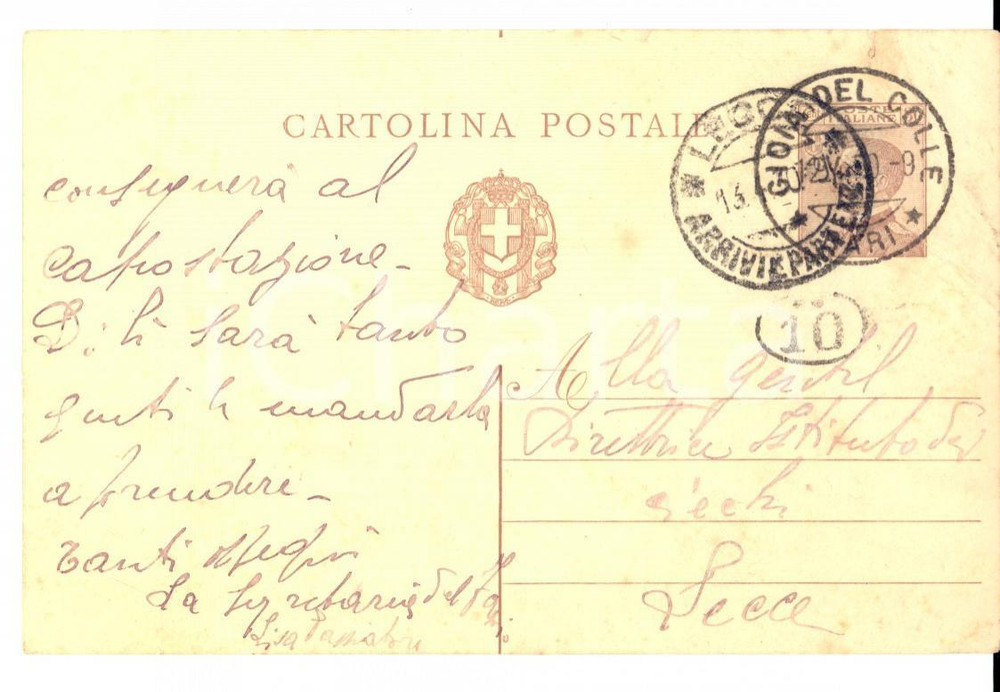 CARTOLINA POSTALE
POSTE
ITALIANE
GIOIA DEL COLLE
BARI
LECCE
ARRIVI E PARTENZE
13
10
consegnerà al
capostazione -
sarà tanto
mandarla
a prendere -
Tanti ossequi
La Segretaria del
Lisa
Alla gentil
Direttrice Istituto dei
ciechi
Lecce
iCharta